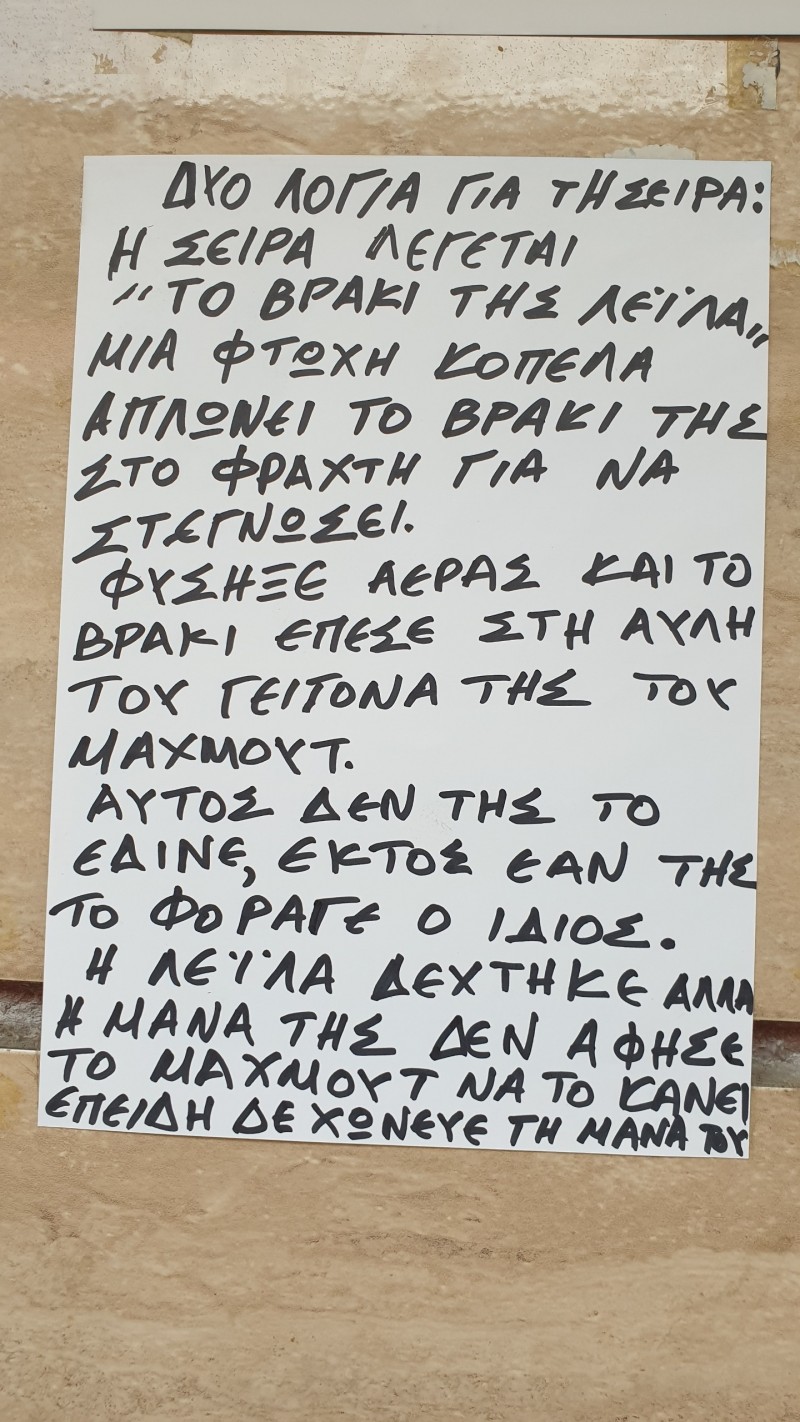 ΔΥΟ ΛΟΓΙΑ ΓΙΑ ΤΗ ΣΕΙΡΑ:
Η ΣΕΙΡΑ ΛΕΓΕΤΑΙ
"ΤΟ ΒΡΑΚΙ ΤΗΣ ΛΕΪΛΑ"
ΜΙΑ ΦΤΩΧΗ ΚΟΠΕΛΑ
ΑΠΛΩΝΕΙ ΤΟ ΒΡΑΚΙ ΤΗΣ
ΣΤΟ ΦΡΑΧΤΗ ΓΙΑ ΝΑ
ΣΤΕΓΝΩΣΕΙ.
ΦΥΣΗΞΕ ΑΕΡΑΣ ΚΑΙ ΤΟ
ΒΡΑΚΙ ΕΠΕΣΕ ΣΤΗ ΑΥΛΗ
ΤΟΥ ΓΕΙΤΟΝΑ ΤΗΣ ΤΟΥ
ΜΑΧΜΟΥΤ.
ΑΥΤΟΣ ΔΕΝ ΤΗΣ ΤΟ
ΕΔΙΝΕ, ΕΚΤΟΣ ΕΑΝ ΤΗΣ
ΤΟ ΦΟΡΑΓΕ Ο ΙΔΙΟΣ.
Η ΛΕΪΛΑ ΔΕΧΤΗΚΕ ΑΛΛΑ
Η ΜΑΝΑ ΤΗΣ ΔΕΝ ΑΦΗΣΕ
ΤΟ ΜΑΧΜΟΥΤ ΝΑ ΤΟ ΚΑΝΕΙ
ΕΠΕΙΔΗ ΔΕ ΧΩΝΕΥΕ ΤΗ ΜΑΝΑ ΤΟΥ